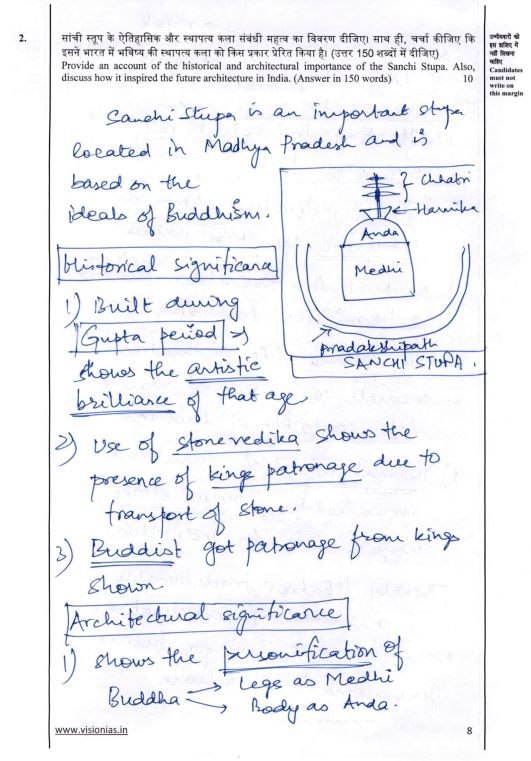 2.
सांची स्तूप के ऐतिहासिक और स्थापत्य कला संबंधी महत्व का विवरण दीजिए। साथ ही, चर्चा कीजिए कि
इसने भारत में भविष्य की स्थापत्य कला को किस प्रकार प्रेरित किया है। (उत्तर 150 शब्दों में दीजिए)
Provide an account of the historical and architectural importance of the Sanchi Stupa. Also,
discuss how it inspired the future architecture in India. (Answer in 150 words) 10
उम्मीदवारों को
इस हाशिए में
नहीं लिखना
चाहिए
Candidates
must not
write on
this margin
Sanchi Stupa is an important stupa
located in Madhya Pradesh and is
based on the
ideals of Buddhism.
Chhatri
Harmika
Anda
Medhi
pradakshipath
SANCHI STUPA.
Historical significance
1) Built during
Gupta period ⇒
shows the artistic
brilliance of that age
2) Use of stone vedika shows the
presence of kings patronage due to
transport of stone.
3) Buddist got patronage from kings
shown
Architectural significance
1) shows the personification of
Buddha → Legs as Medhi
→ Body as Anda.
www.visionias.in
8